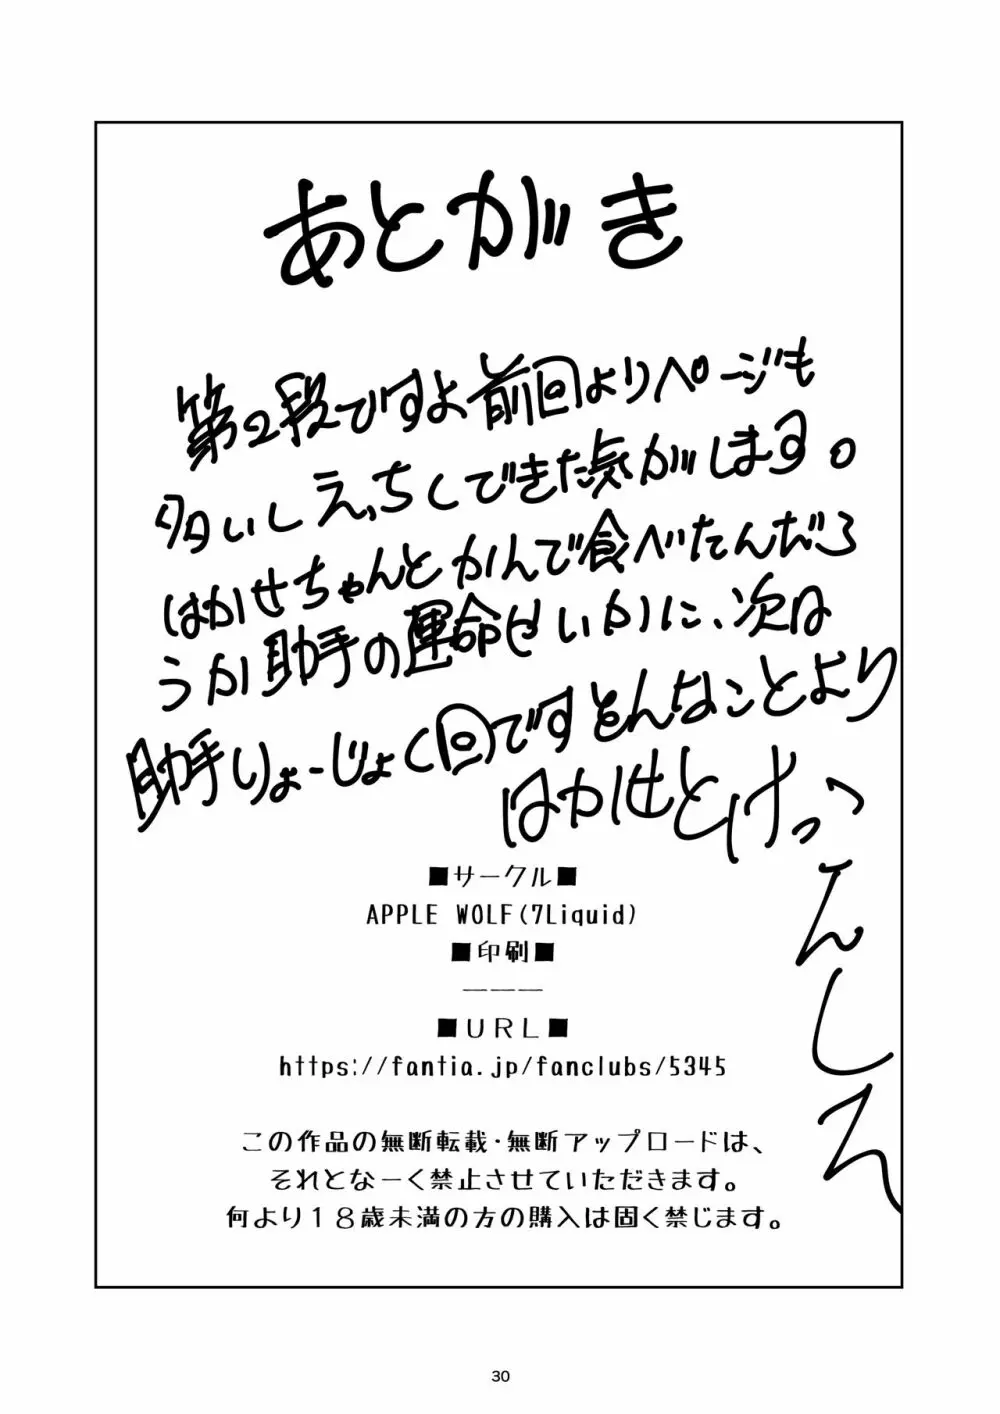 あとがき
第2段ですよ前回よりページも
多いしえっちくできた気がします。
はかせちゃんとかんで食べたんだろ
うか助手の運命はいかに、次は
助手りょーじょく回ですそんなことより
はかせとけっ
こんしろ
■サークル■
APPLE WOLF(7Liquid)
■印刷■
———
■URL■
https://fantia.jp/fanclubs/5345
この作品の無断転載・無断アップロードは、
それとなーく禁止させていただきます。
何より18歳未満の方の購入は固く禁じます。
30